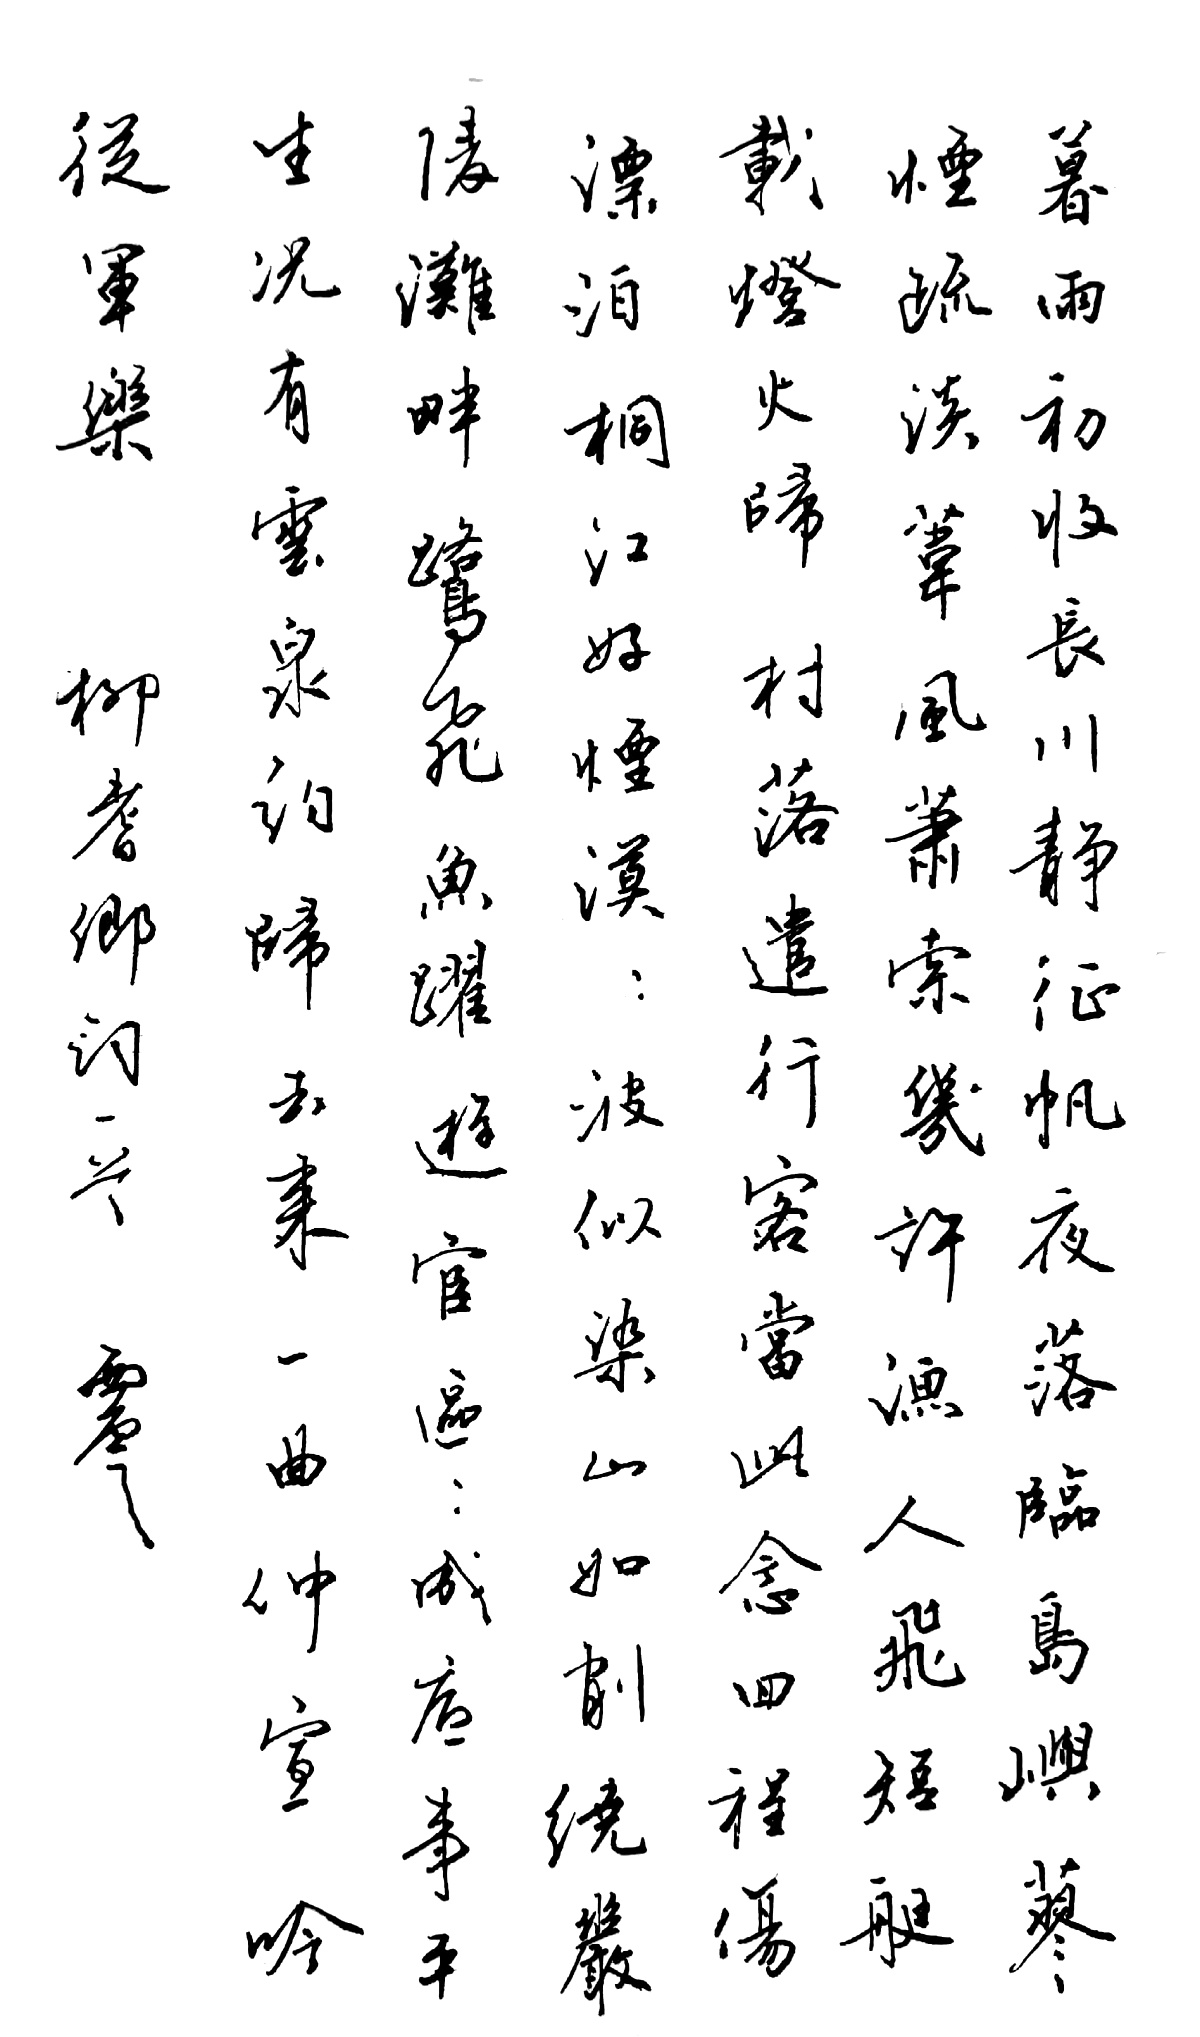 暮雨初收長川靜征帆夜落臨島嶼蓼
煙疏淡葦風蕭索幾許漁人飛短艇
載燈火歸村落遣行客當此念回程傷
漂泊桐江好煙漠：波似染山如削繞嚴
陵灘畔鷺飛魚躍遊宦區：成底事平
生況有雲泉約歸去來一曲仲宣吟
從軍樂 柳耆卿詞一首